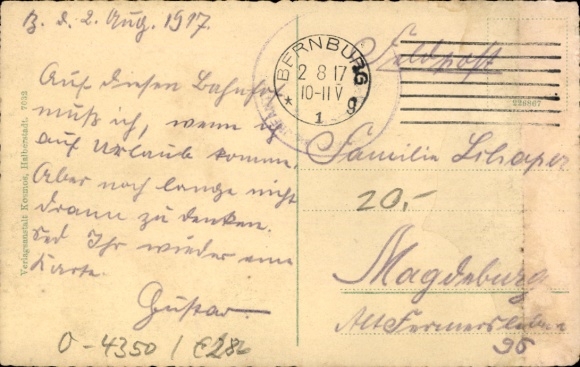 B. d. 2. Aug. 1917.
Auf diesen Bahnhof
muß ich, wenn ich
auf Urlaub komme.
Aber noch lange nicht
dran zu denken.
Ihr wieder eine
Karte.
Gustav
Feldpost
BERNBURG
2 8 17
10-11 V
* 1 g
226867
Familie
20,-
Magdeburg
Alt Fermersleben
96
O-4350 /
Verlagsanstalt Kosmos, Halberstadt. 7632